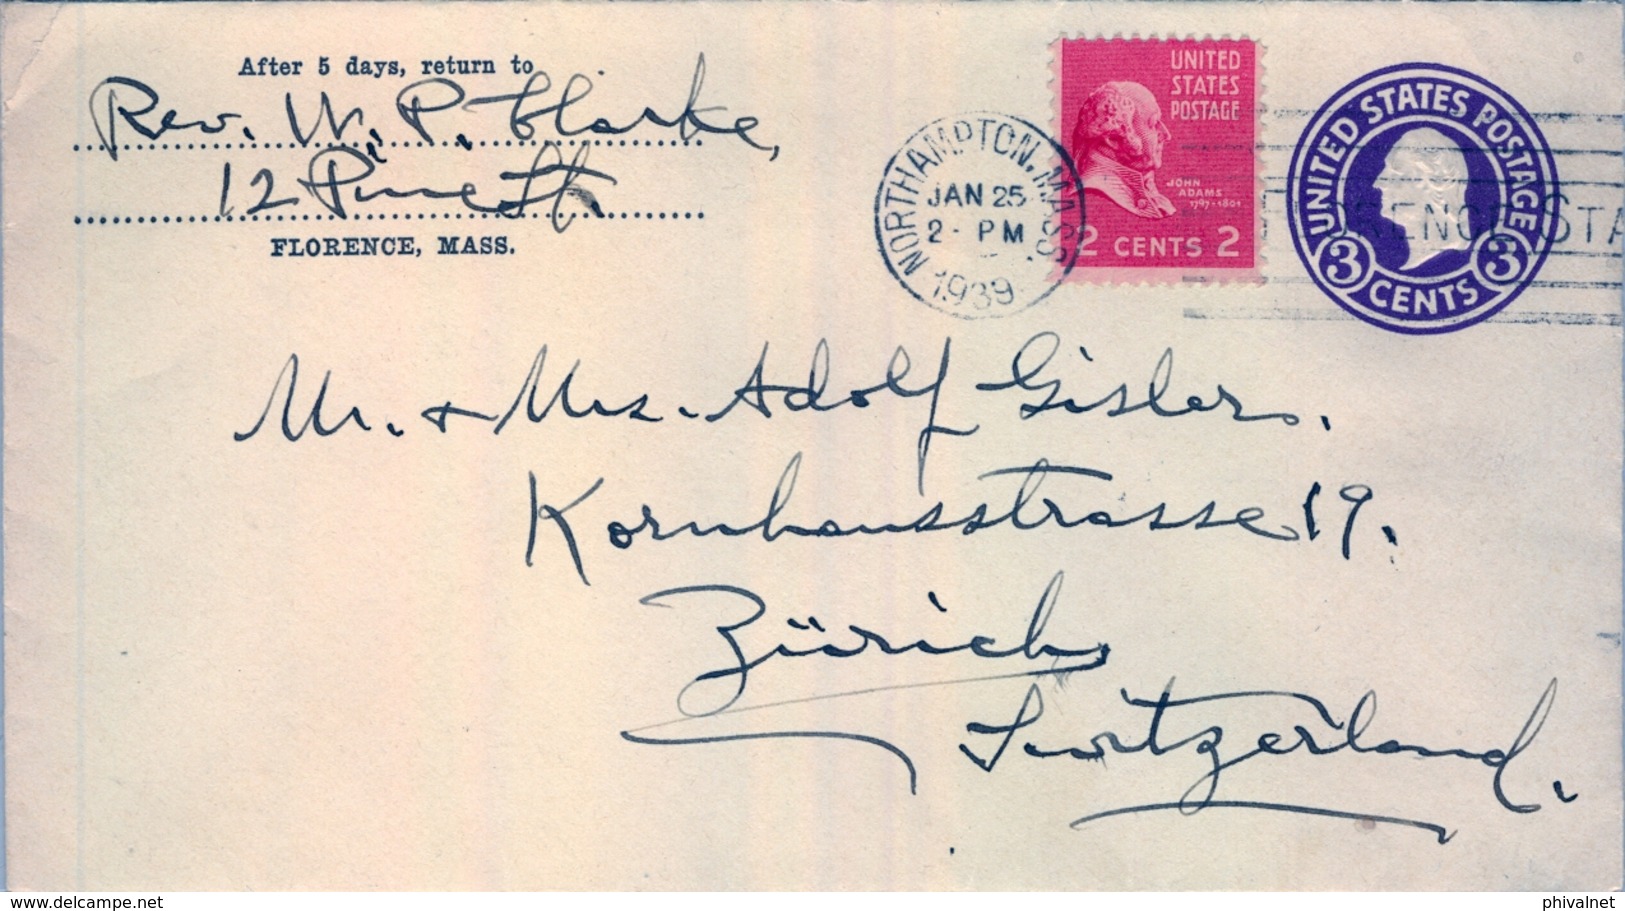 After 5 days, return to
Rev. W. P. Clarke,
12 Pine St.
FLORENCE, MASS.
NORTHAMPTON, MASS.
JAN 25
2 - PM
1939
UNITED
STATES
POSTAGE
JOHN
ADAMS
1797-1801
2 CENTS 2
UNITED STATES POSTAGE
3 CENTS 3
FLORENCE STA
Mr. & Mrs. Adolf Gisler.
Kornhausstrasse 19.
Zürich,
Switzerland.
www.delcampe.net
phivalnet